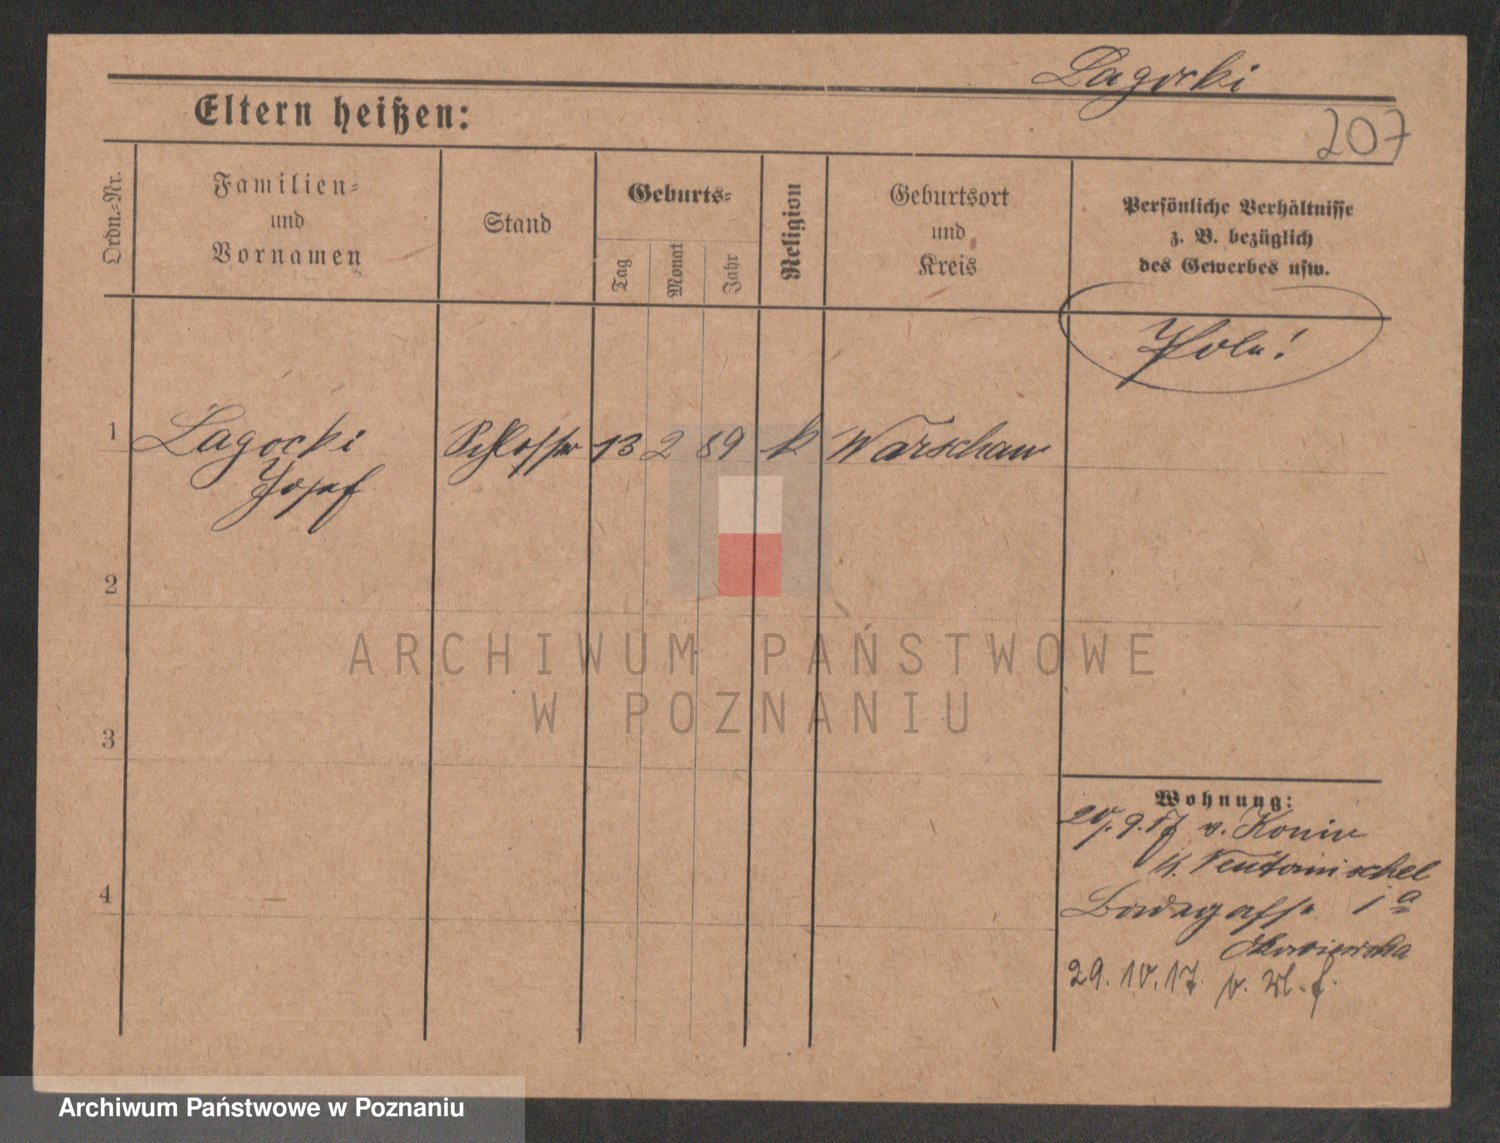 Lagocki
Eltern heißen:
207
Ordn.-Nr.
Familien-
und
Vornamen
Stand
Geburts-
Tag
Monat
Jahr
Religion
Geburtsort
und
Kreis
Persönliche Verhältnisse
z. B. bezüglich
des Gewerbes usw.
Pole!
1 Lagocki Schlosser 13 2 89 k Warschau
Josef
2
ARCHIWUM PAŃSTWOWE
W POZNANIU
3
Wohnung:
20.9.17 v. Konin
K. Neutomischel
4
1a
29.10.17
Archiwum Państwowe w Poznaniu